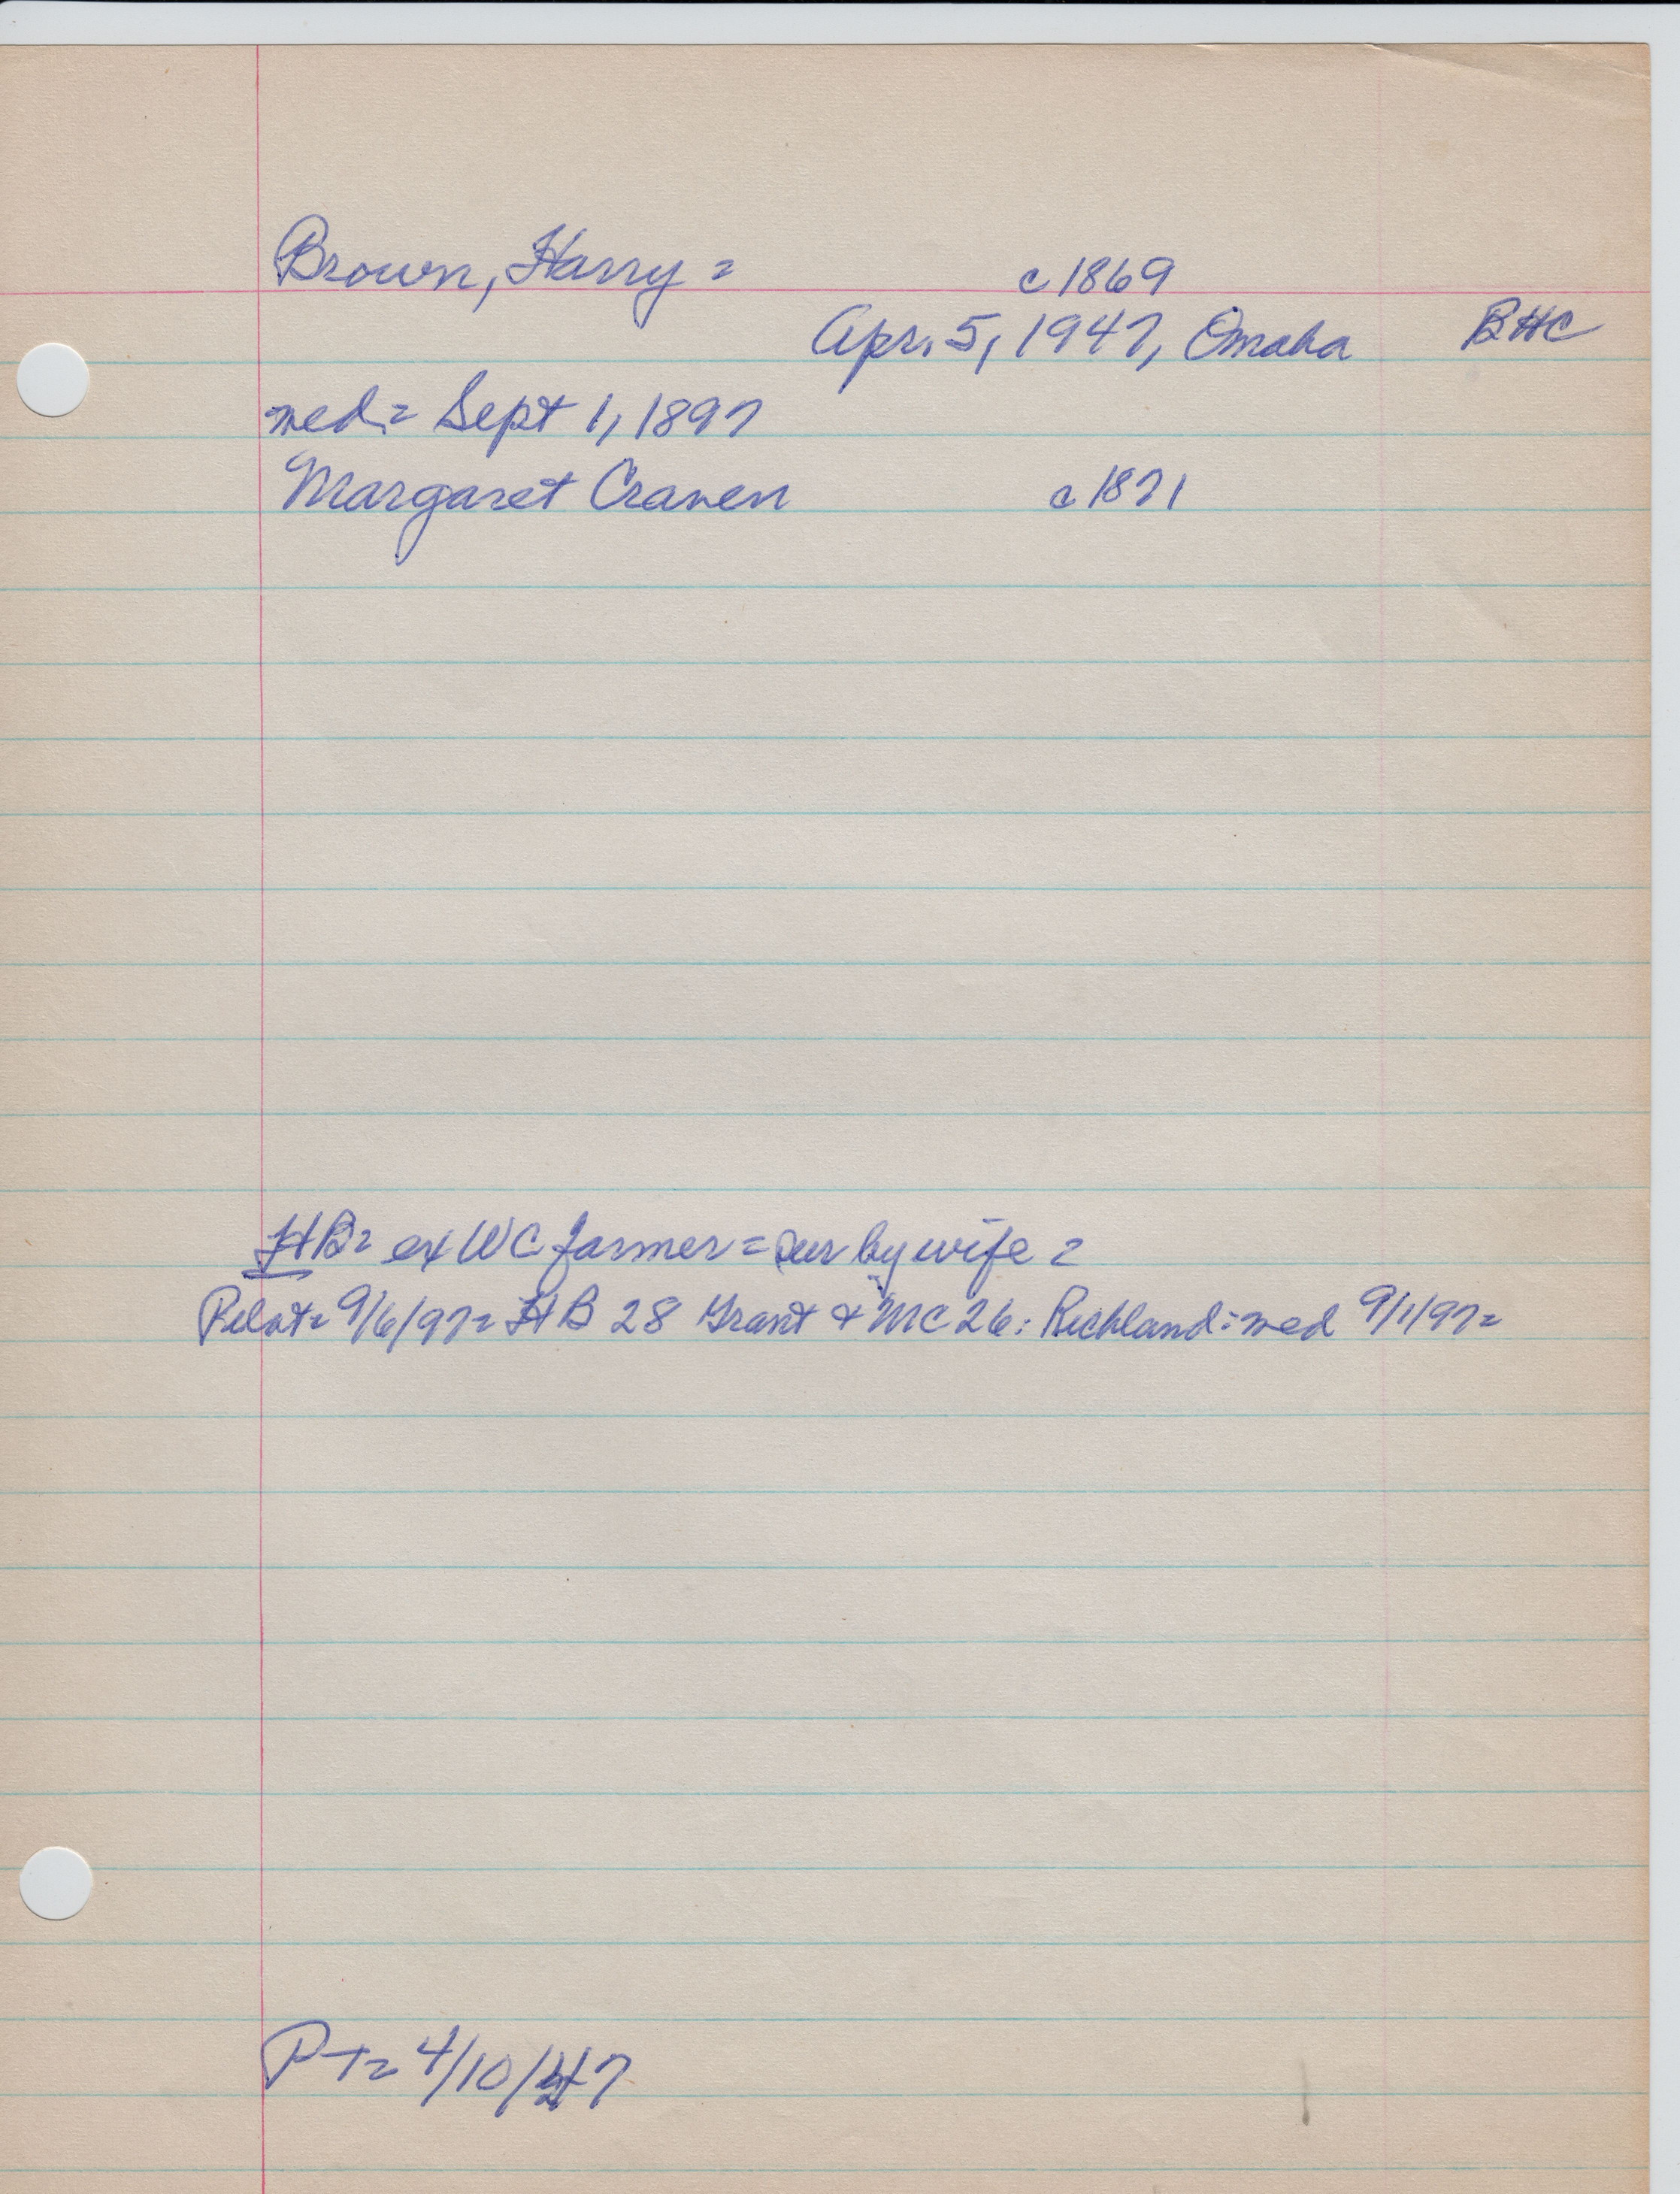 Brown, Harry = c1869
Apr. 5, 1947, Omaha BHC
med = Sept 1, 1897
Margaret Craven c1871
HB = ex WC farmer = sur by wife =
Pilot = 9/6/97 = HB 28 Grant & MC 26: Richland: med 9/1/97 =
PT = 4/10/47